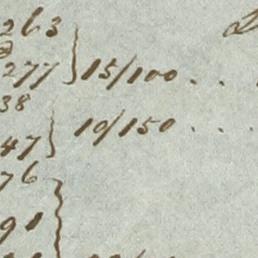 263
277 } 15/100 . . .
38
47 } 10/150 . . .
76
91